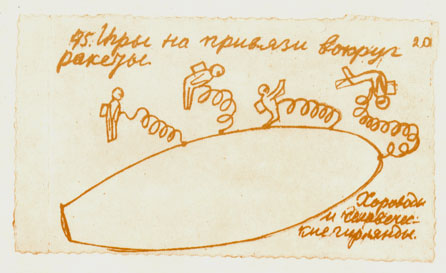 75. Игры на привязи вокруг
ракеты.
Хороводы
и человечес-
кие гирлянды.